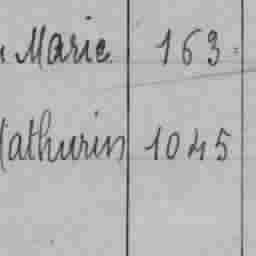 Marie 163
Mathurin 1045